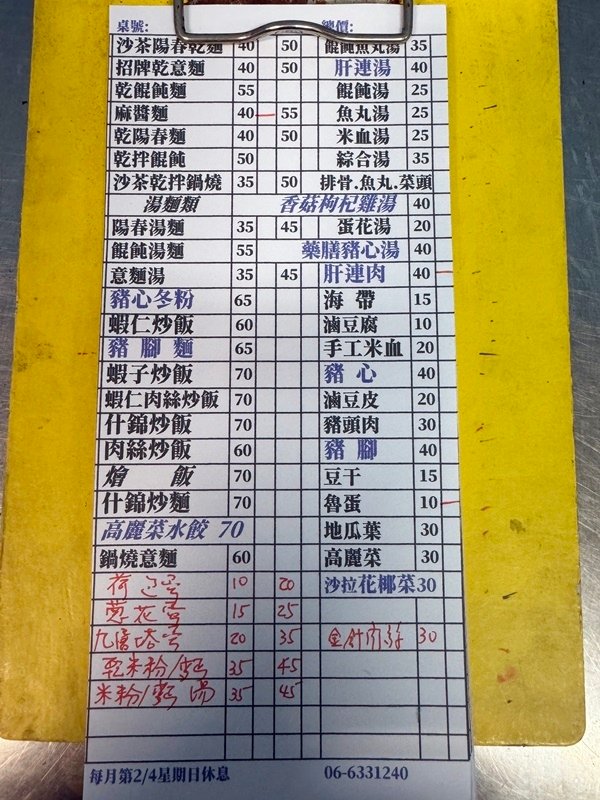 桌號: 總價:
沙茶陽春乾麵 40 50 餛飩魚丸湯 35
招牌乾意麵 40 50 肝連湯 40
乾餛飩麵 55 餛飩湯 25
麻醬麵 40 55 魚丸湯 25
乾陽春麵 40 50 米血湯 25
乾拌餛飩 50 綜合湯 35
沙茶乾拌鍋燒 35 50 排骨.魚丸.菜頭
湯麵類 香菇枸杞雞湯 40
陽春湯麵 35 45 蛋花湯 20
餛飩湯麵 55 藥膳豬心湯 40
意麵湯 35 45 肝連肉 40
豬心冬粉 65 海帶 15
蝦仁炒飯 60 滷豆腐 10
豬腳麵 65 手工米血 20
蝦子炒飯 70 豬心 40
蝦仁肉絲炒飯 70 滷豆皮 20
什錦炒飯 70 豬頭肉 30
肉絲炒飯 60 豬腳 40
燴飯 70 豆干 15
什錦炒麵 70 魯蛋 10
高麗菜水餃 70 地瓜葉 30
鍋燒意麵 60 高麗菜 30
荷包蛋 10 20 沙拉花椰菜30
蔥花蛋 15 25
九層塔蛋 20 35 金針肉絲 30
乾米粉/麵 35 45
米粉/麵 湯 35 45
每月第2/4星期日休息 06-6331240